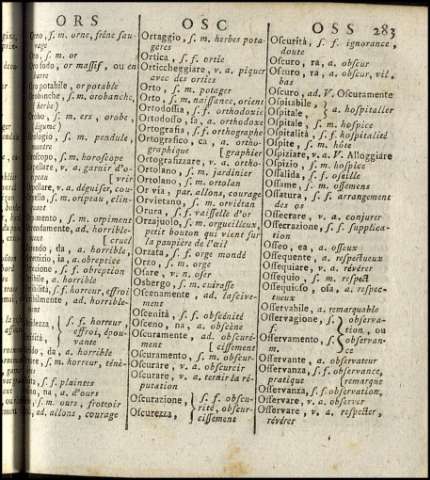 ORS
OSC
OSS 283
s. m. orne, frêne sau-
vage
s. m. or
or massif, ou en
potabile, or potable
s. m. orobanche,
herbe)
s. m. ers, orobe,
légume)
s. m. pendule,
s. m. horoscope
v. a. garnir d'o-
[vrir
v. a. déguiser, cou-
s. m. oripeau, clin-
quant
s. m. orpiment
ad. horrible-
[cruel
da, a. horrible,
ia, a. obreptice
s. f. obreption
a. horrible
s. f. horreur, effroi
ad. horrible-
ment
s. f. horreur,
effroi, épou-
vante
do, da, a. horrible
s. m. horreur, ténè-
s. f. plaintes
na, a. d'ours
s. m. ours, frottoir
ad. allons, courage
Ortaggio, s. m. herbes pota-
gères
Ortica, s. f. ortie
Orticheggiare, v. a. piquer
avec des orties
Orto, s. m. potager
Orto, s. m. naissance, orient
Ortodossia, s. f. orthodoxie
Ortodosso, ia, a. orthodoxe
Ortografia, s. f. orthographe
Ortografico, ca, a. ortho-
graphique [graphier
Ortografizzare, v. a. ortho-
Ortolano, s. m. jardinier
Ortolano, s. m. ortolan
Or via, par. allons, courage
Orvietano, s. m. orviétan
Orura, s. f. vaisselle d'or
Orzajuolo, s. m. orgueilleux,
petit bouton qui vient sur
la paupière de l'œil
Orzata, s. f. orge mondé
Orzo, s. m. orge
Osare, v. n. oser
Osbergo, s. m. cuirasse
Oscenamente, ad. lascive-
ment
Oscenità, s. f. obscénité
Osceno, na, a. obscène
Oscuramente, ad. obscuré-
ment [cissement
Oscuramento, s. m. obscur-
Oscurare, v. a. obscurcir
Oscurare, v. a. ternir la ré-
putation
Oscurazione, } s. f. obscu-
rité, obscur-
Oscurezza, } cissement
Oscurità, s. f. ignorance,
doute
Oscuro, ra, a. obscur
Oscuro, ra, a. obscur, vil,
bas
Oscuro, ad. V. Oscuramente
Ospitabile, } a. hospitalier
Ospitale,
Ospitale, s. m. hospice
Ospitalità, s. f. hospitalité
Ospite, s. m. hôte
Ospiziare, v. a. V. Alloggiare
Ospizio, s. m. hospice
Ossalida, s. f. oseille
Ossame, s. m. ossemens
Ossatura, s. f. arrangement
des os
Ossecrare, v. a. conjurer
Ossecrazione, s. f. supplica-
tion
Osseo, ea, a. osseux
Ossequente, a. respectueux
Ossequiare, v. a. révérer
Ossequio, s. m. respect
Ossequioso, osa, a. respec-
tueux
Osservabile, a. remarquable
Osservagione, s. f. } observa-
tion, ou
Osservamento, s. } observan-
m. ce
Osservante, a. observateur
Osservanza, s. f. observance,
pratique [remarque
Osservanza, s. f. observation,
Osservare, v. a. observer
Osservare, v. a. respecter,
révérer